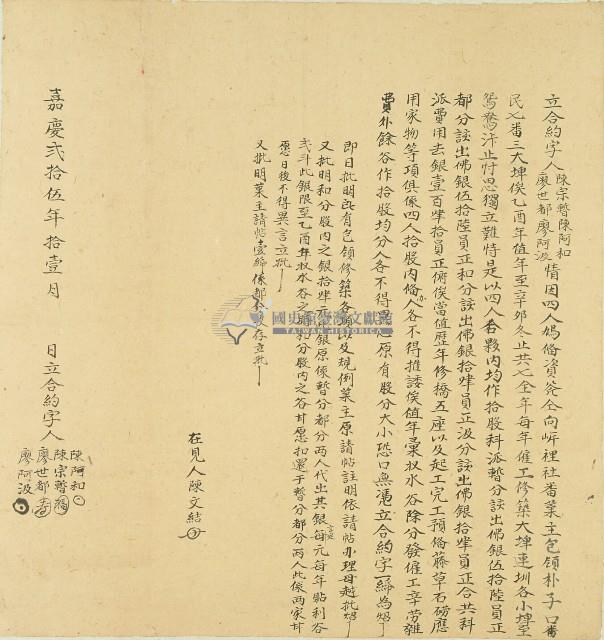 立合約字人陳宗暫陳阿和廖世都廖阿波情因四人媽備資夲仝向岸裡社番業主包領朴子口番
民七番三大埤俟乙酉年值年至辛卯冬止共七全年每年僱工修築大埤連圳各小埤至
鴛鴦汴止忖思獨立難恃是以四人夥內均作拾股科派暫分該出佛銀伍拾陸員正
都分該出佛銀伍拾陸員正和分該出佛銀拾肆員正波分該出佛銀拾肆員正合共科
派費用去銀壹百肆拾員正俯俟當值歷年修橋五座以及起工完工預備藤草石磅應
用家物等項俱係四人拾股內備各不得推諉俟值年彙收水谷除分發僱工辛勞雜
費外餘谷作拾股均分人各不得 原有股分大小恐口無憑立合約字一紙為炤
即日批明此有包領修築各 以及規例業主原請帖註明依請帖办理毋越批炤
又批明和分股內之銀拾肆 銀原係暫分都分兩人代出其銀每元每年貼利谷
弍斗此銀限至乙酉年收水谷之 和分股內之谷甘愿扣還于暫分都分兩人此係兩家甘
愿日後不得異言立批
又批明業主請帖壹紙係都 收存立批
在見人陳文結
嘉慶弍拾伍年拾壹月 日立合約字人
陳阿和
陳宗暫
廖世都
廖阿波
國史館臺灣文獻館
TAIWAN HISTORICA